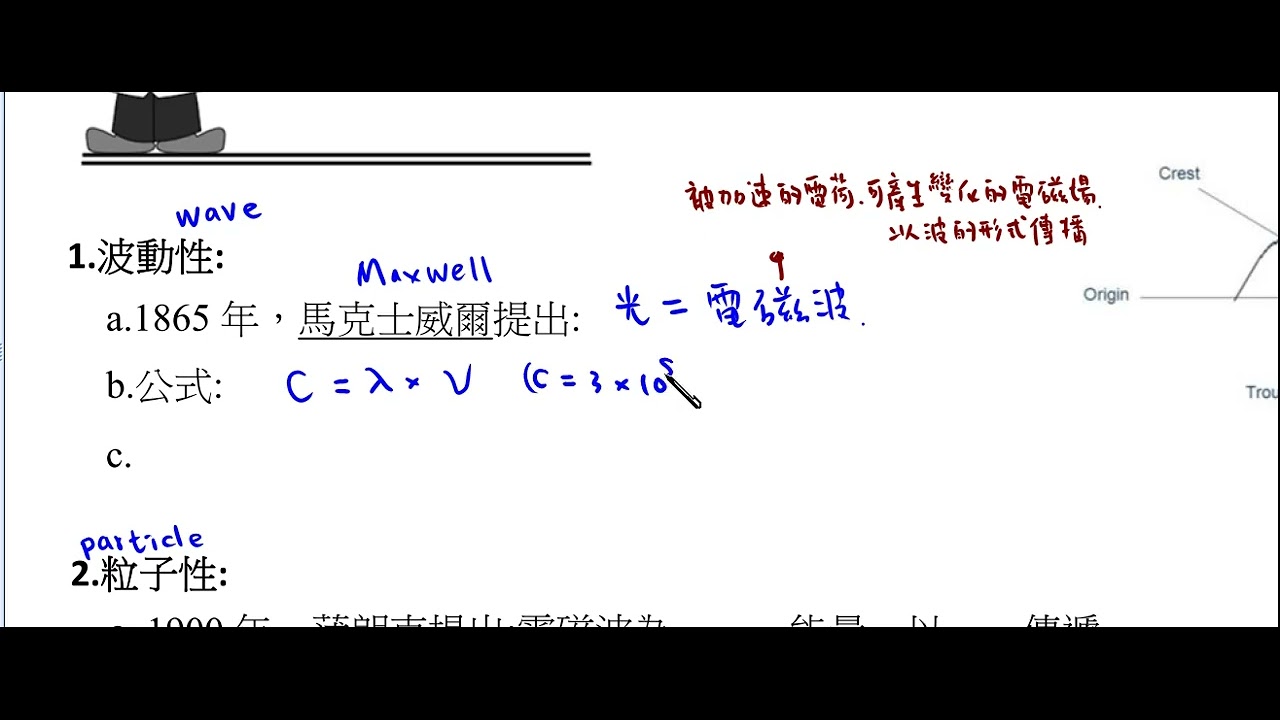 被加速的電荷.可產生變化的電磁場.
以波的形式傳播
Crest
wave
1.波動性:
Maxwell
Origin
a.1865 年，馬克士威爾提出: 光 = 電磁波.
b.公式: C = λ × ν (C = 3 × 10
Trou
c.
particle
2.粒子性:
1900 年